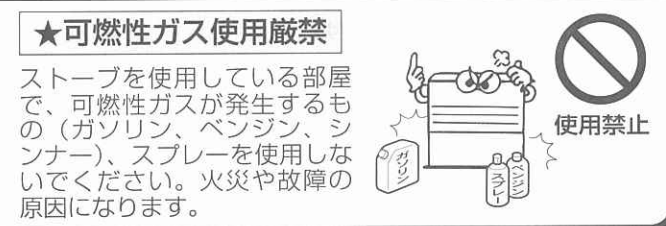 ★可燃性ガス使用厳禁
ストーブを使用している部屋
で、可燃性ガスが発生するも
の（ガソリン、ベンジン、シ
ンナー）、スプレーを使用しな
いでください。火災や故障の
原因になります。
ガソリン
スプレー
ベンジン
使用禁止